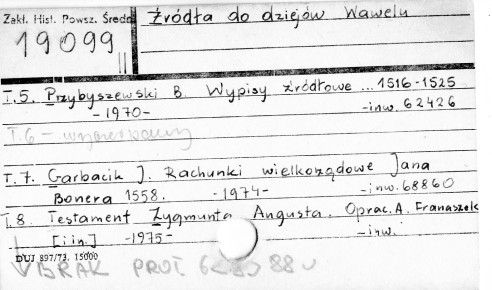 Zakł. Hist. Powsz. Średn
Źródła do dziejów Wawelu
19099
T.5. Przybyszewski B. Wypisy źródłowe ... 1516-1525
- 1970 - - inw. 62426
T.6 -
T.7. Garbacik J. Rachunki wielkorządowe Jana
Bonera 1558. - 1974 - - inw. 68860
T.8. Testament Zygmunta Augusta. Oprac. A. Franaszek
[i in.] - 1975 - - inw.
DUJ 897/73. 15000
BRAK PROT 88